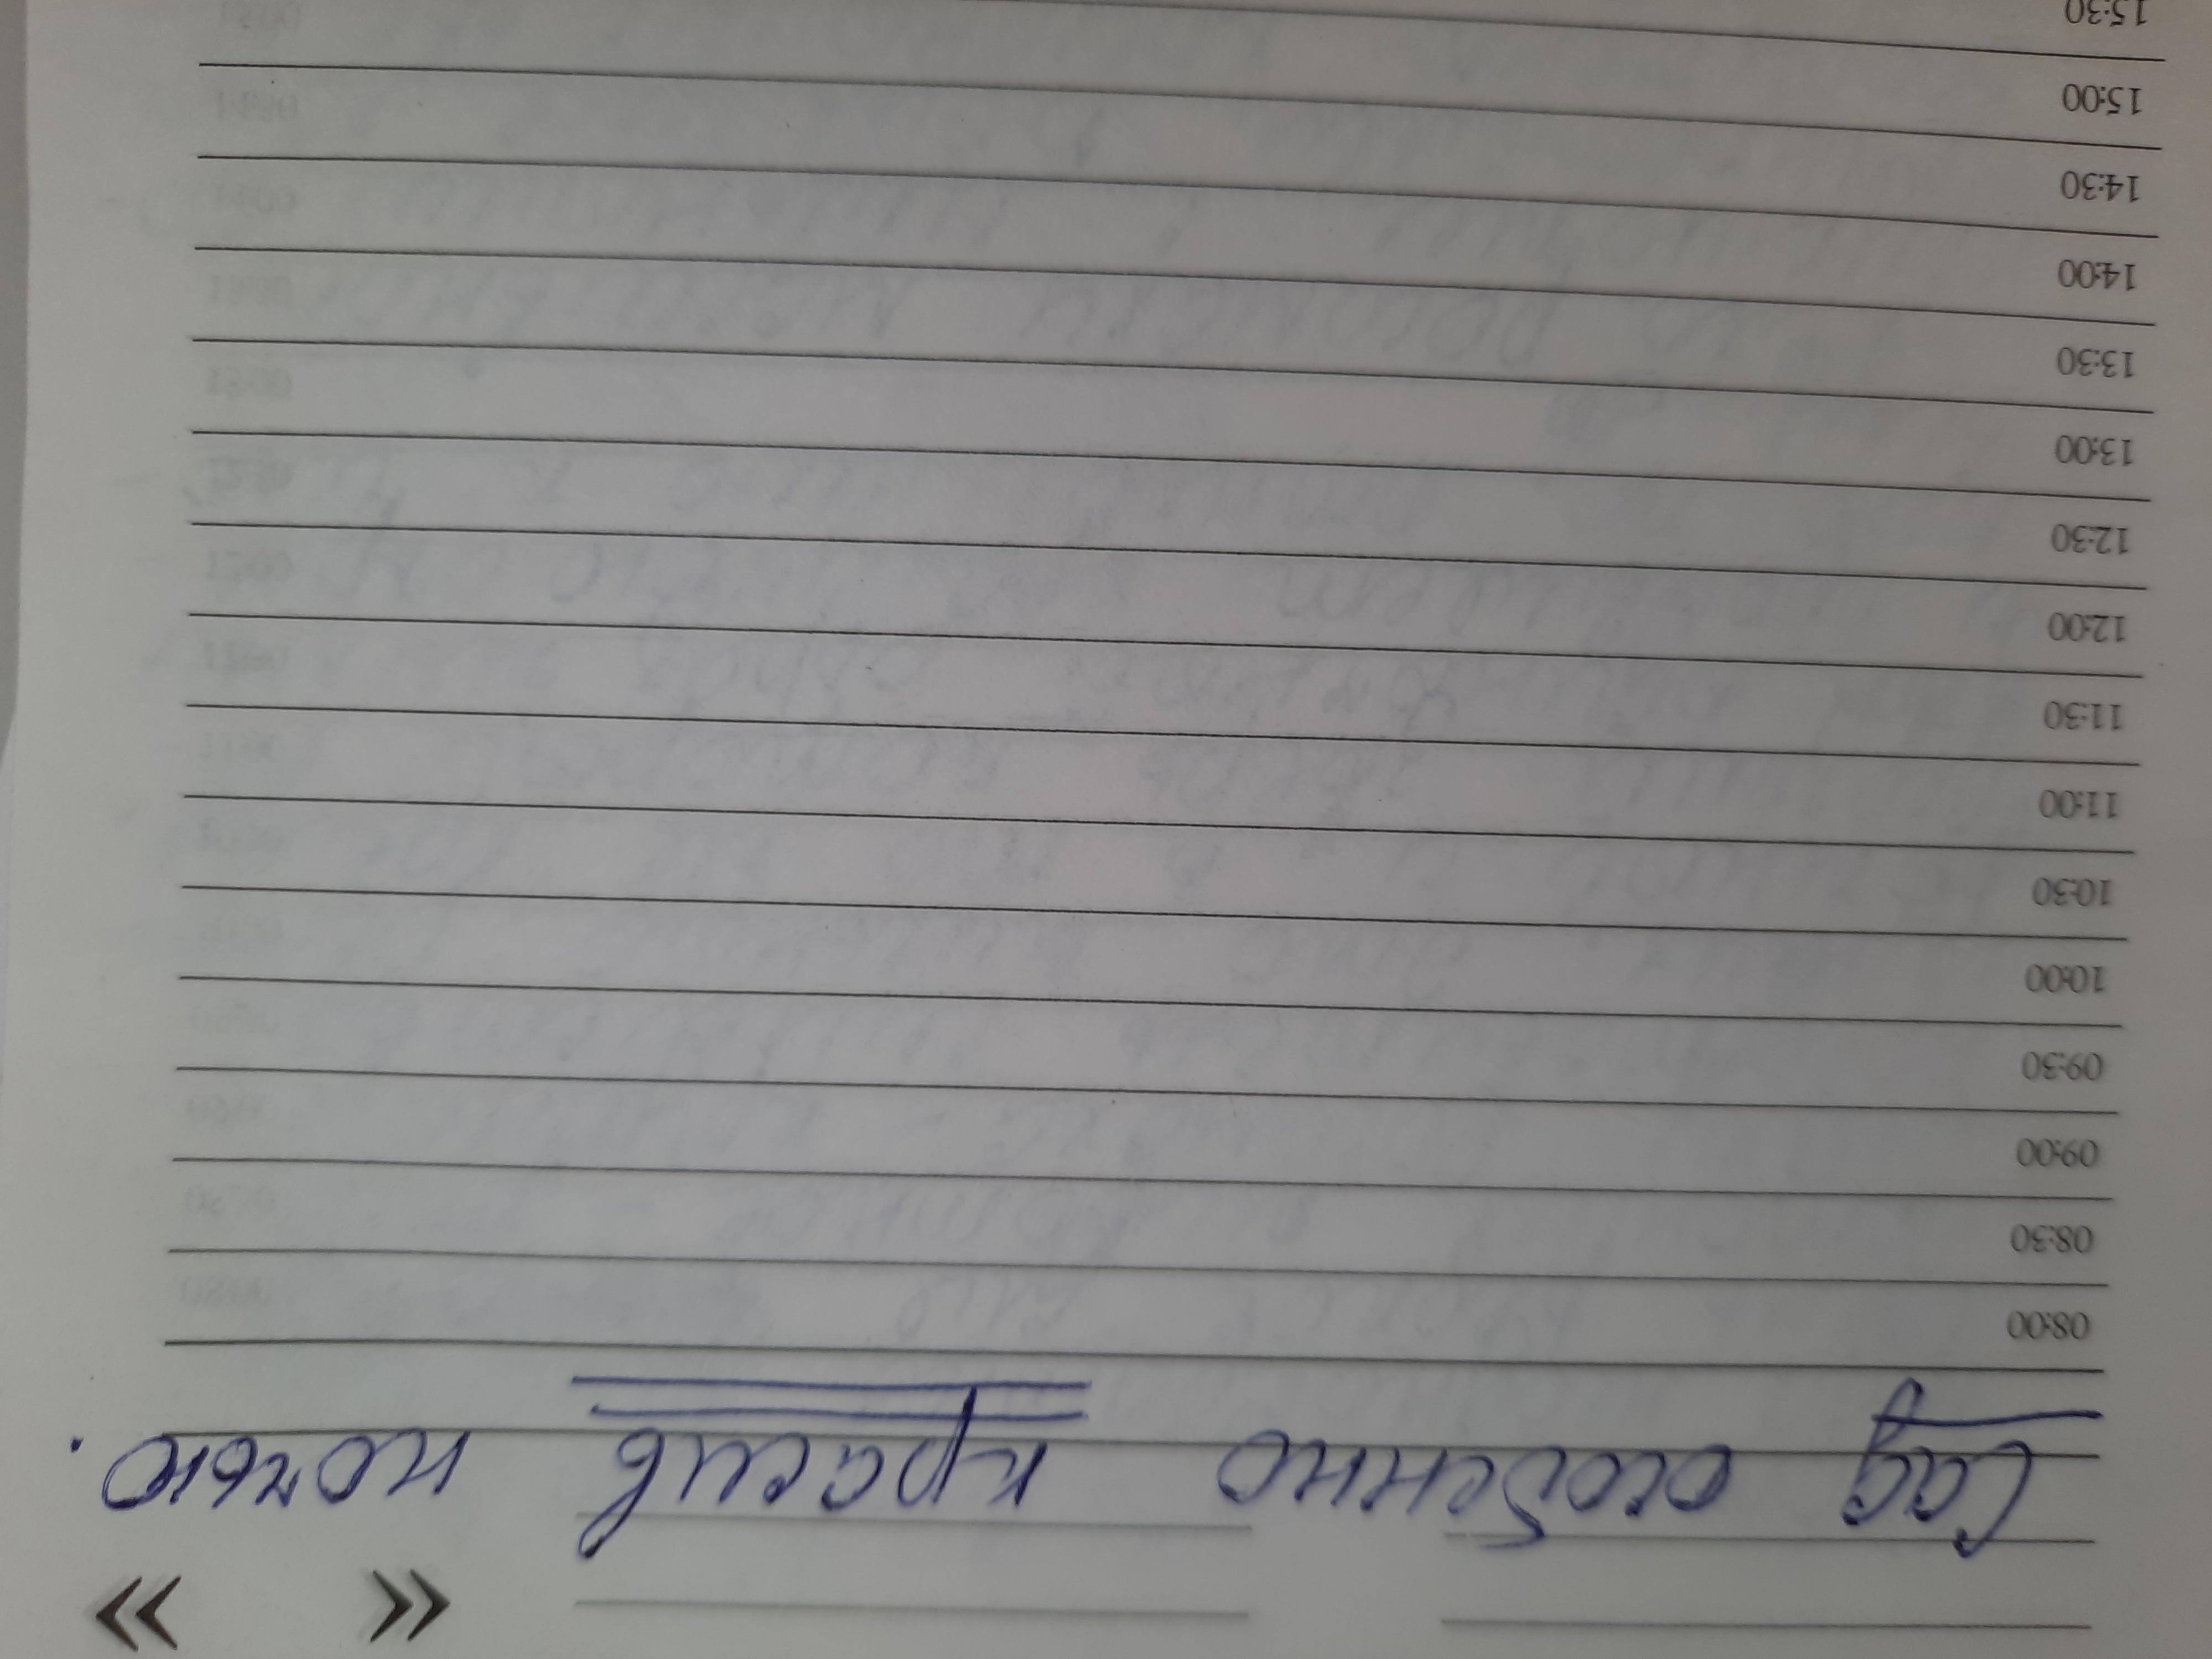 « »
Сад особенно красив ночью.
08:00
08:30
09:00
09:30
10:00
10:30
11:00
11:30
12:00
12:30
13:00
13:30
14:00
14:30
15:00
15:30